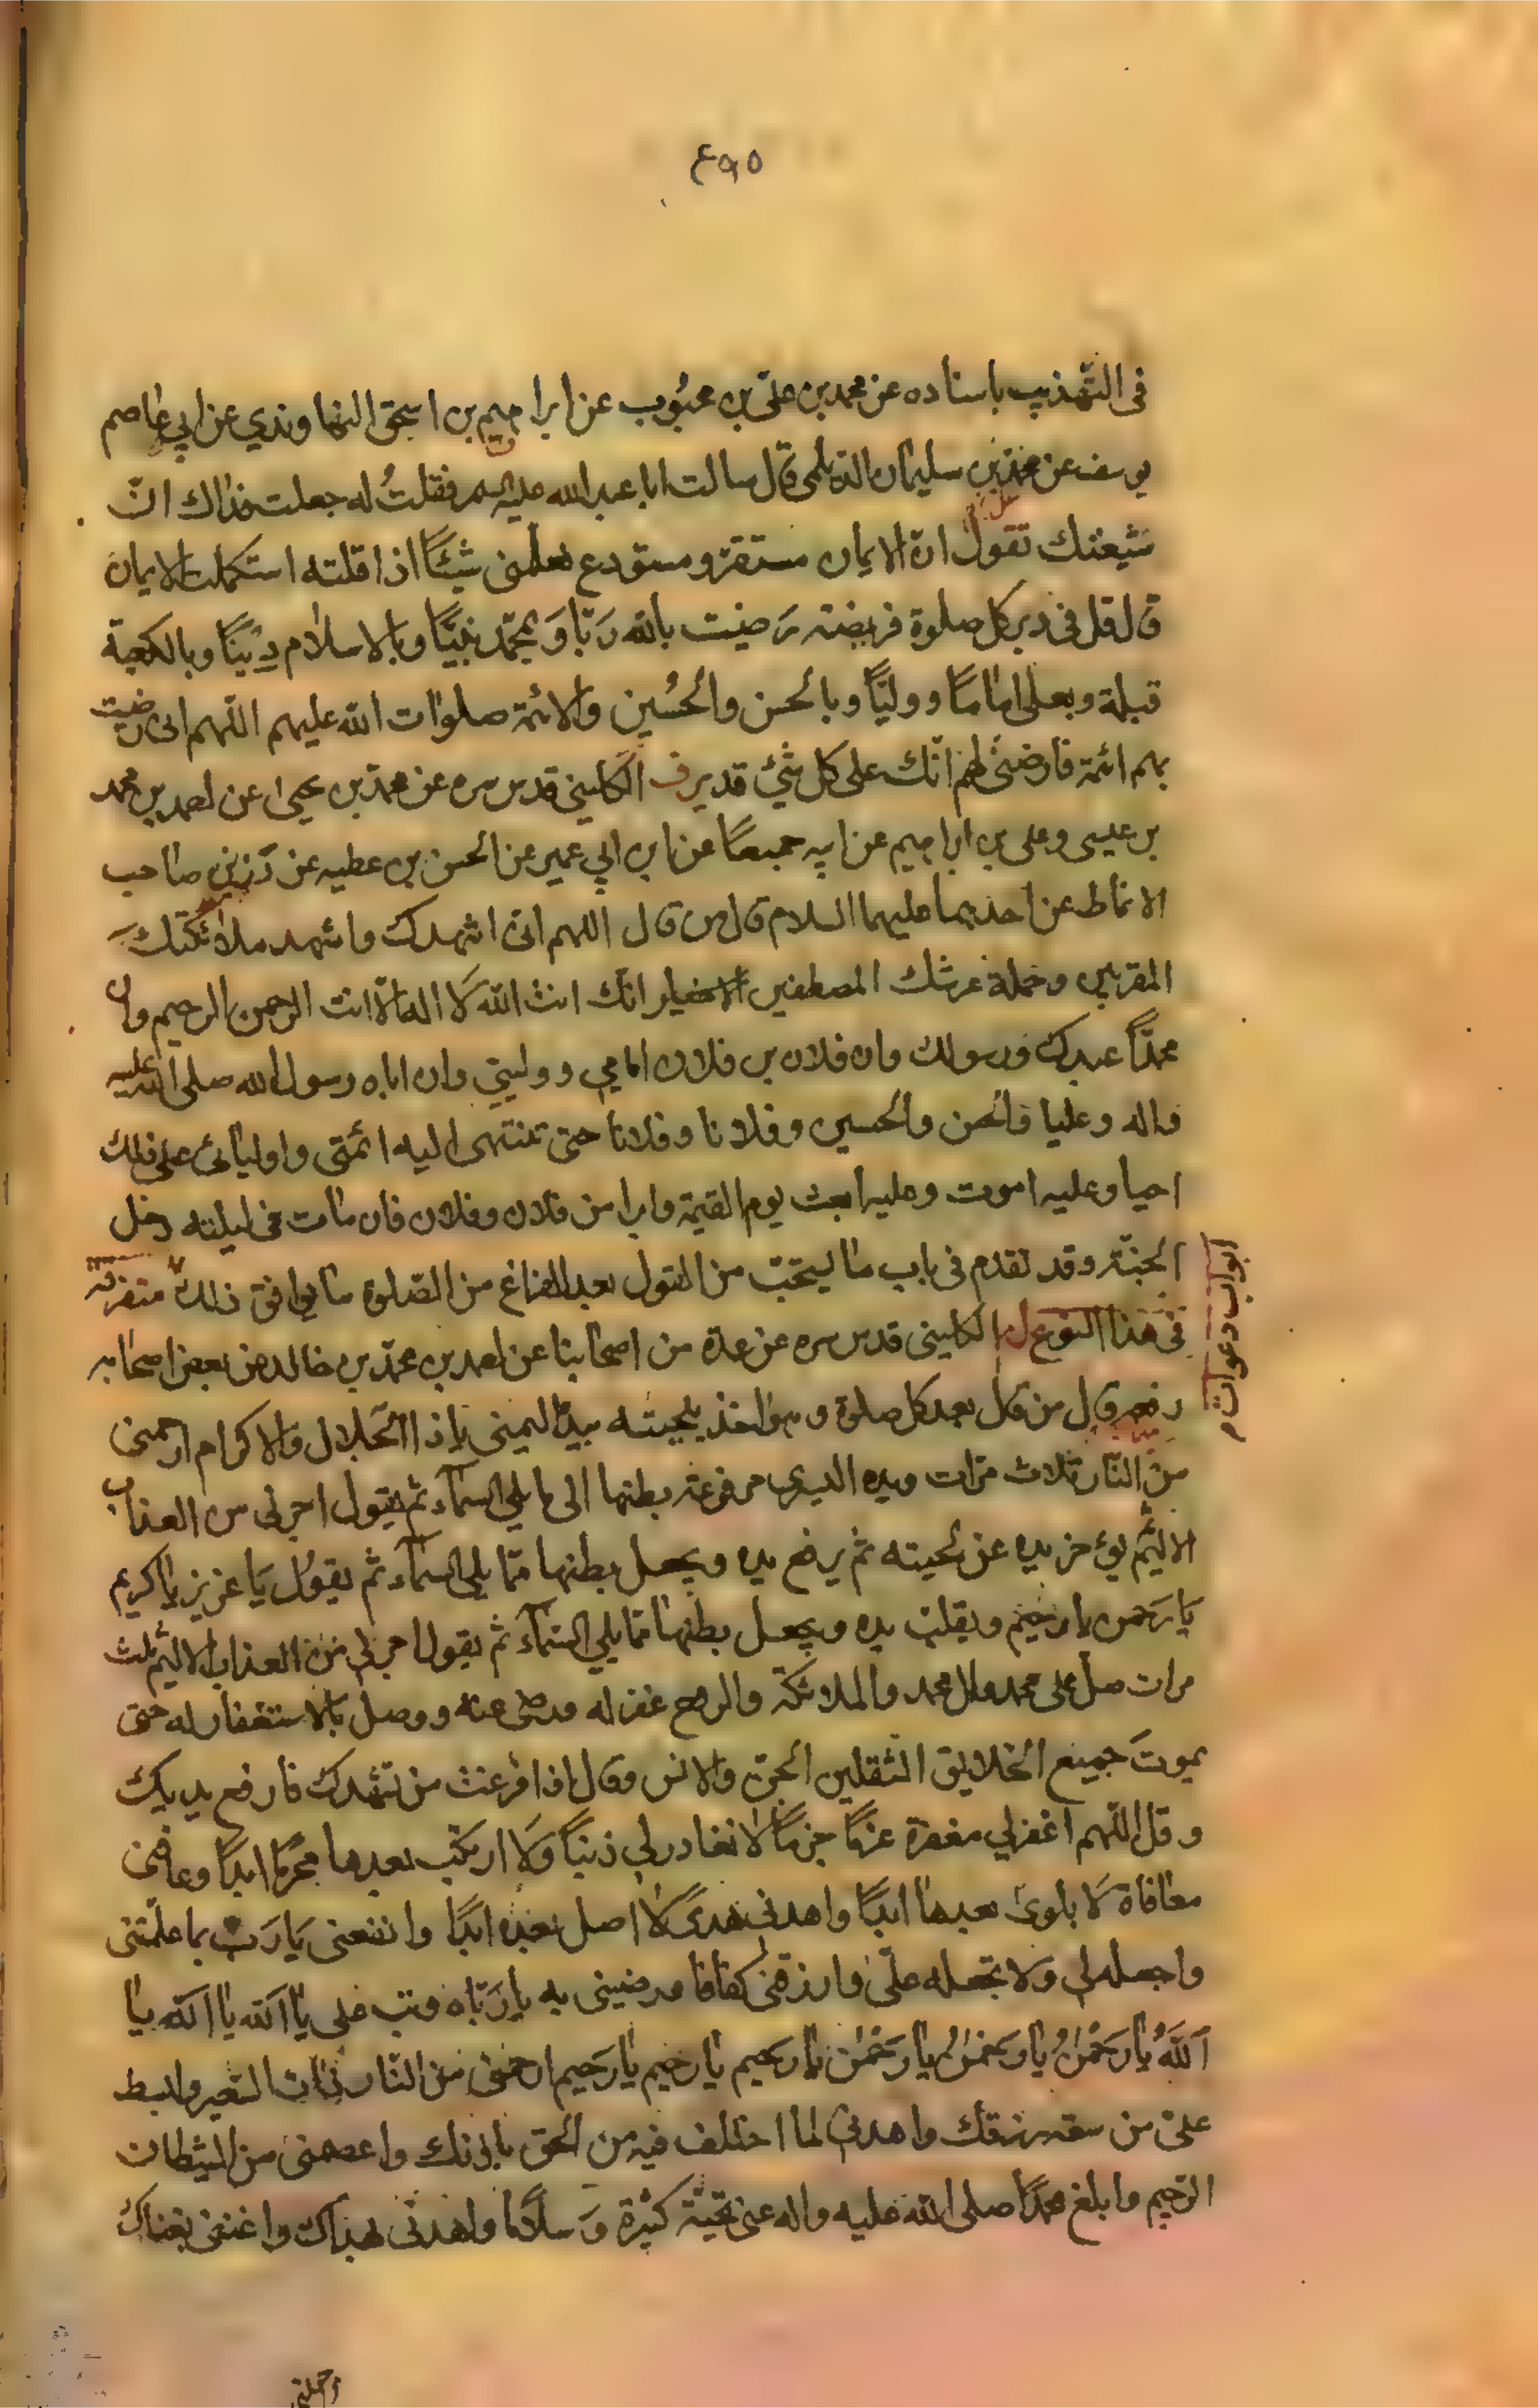 ٤٩٥
في التهذيب باسناده عن محمد بن علي بن محبوب عن ابراهيم بن اسحق النهاوندي عن ابي عاصم
يوسف عن محمد بن سليمان الديلمي قال سالت ابا عبد الله عليه السلم فقلتُ له جعلت فداك انّ
شيعتك تقول انّ الايمان مستقرّ ومستودع فعلّمني شيئًا اذا قلته استكملت الايمان
قال قل في دبر كل صلوة فريضة رَضيت بالله رَبّا وَبمحمّد نبيّاً وبالاسلام دِينًا وبالكعبة
قبلة وبعلى امامًا ووليّاً وبالحسن والحُسين والائمة صلوات الله عليهم اللهم انى رضيت
بهم ائمة فارضنى لهم انّك على كل شئ قدير ف الكليني قدس سره عن محمّد بن يحيى عن احمد بن محمد
بن عيسى وعلى بن ابراهيم عن ابيه جميعًا عن ابن ابي عمير عن الحسن بن عطيه عن رَزين صاحب
الانماط عن احدهما عليهما السلام قال من قال اللهم انى اشهدك واشهد ملائكتك
المقربين وحملة عرشك المصطفين انّك انت الله لَا اله الّا انت الرحمن الرحيم وان
محمّداً عبدك ورسولك وان فلان بن فلان امامي ووليّي وان اباه رسول الله صلى الله عليه
واله وعليا والحسن والحسين وفلانا وفلانا حتى تنتهى اليه ائمتى واوليائى على ذلك
احيا وعليه اموت وعليه ابعث يوم القيمة وابرا من فلان وفلان فان مات في ليلته دخل
الجنّة وقد تقدم في باب ما يستحبّ من القول بعد الفراغ من الصّلوة ما يوافق ذلك متفرقة
في هذا النوع الكليني قدس سره عن عدة من اصحابنا عن احمد بن محمّد بن خالد عن بعض اصحابه
رفعه قال من قال بعد كل صلوة وهو اخذ بلحيته بيده اليمنى يا ذا الجلال والاكرام ارحمنى
من النّار ثلاث مرّات ويده اليسرى مرفوعة بطنها الى ما يلي السمآء ثم يقول اجرنى من العذاب
الاليم ثم يؤخر يده عن لحيته ثم يرفع يده ويجعل بطنها ممّا يلي السمآء ثم يقول يَا عزيز يا كريم
يَا رَحمن يا رحيم ويقلب يده ويجعل بطنها ممّا يلي السّمآء ثم يقول اجرنى من العذاب الاليم ثلث
مرات صل على محمد وال محمد والملائكة والروح غفر له ورضى عنه ووصل بالاستغفار له حتى
يموت جميع الخلايق الثقلين الجن والانس وقال اذا فرغت من تشهدك فارفع يديك
وقل اللّهم اغفر لي مغفرة عزمًا جزمًا لا تغادر لي ذنباً وَلَا ارتكب بعدها محرّما ابدًا وعافنى
معافاة لَا بلوى بعدها ابدًا واهدنى هدًى لا اضل بعده ابدًا وانفعنى يَا رَب بما علّمتنى
واجعله لي وَلا تجعله علىّ وارزقنى كفافا ورضينى به يا رَبّاه وتب على يا الله يا الله يا
اَللهُ يا رَحْمٰنُ يا رَحمٰنُ يا رَحْمٰن يا رحيم يا رحيم يا رَحيم ارحمنى من النّار ذات السّعير وابسط
علىّ من سعة رزقك واهدنى لما اختلف فيه من الحق باذنك واعصمنى من الشيطان
الرّجيم وابلغ محمّدًا صلى الله عليه واله عنى تحيّة كثيرة وَسلامًا واهدنى بهداك واغننى بغناك
ابواب دعوات م